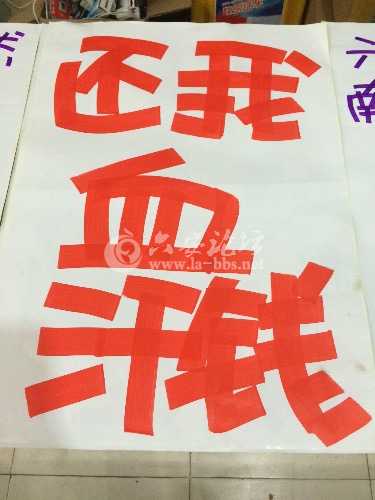 还我
血
汗钱
六安论坛
www.la-bbs.net